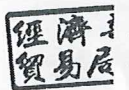 經濟
貿易居